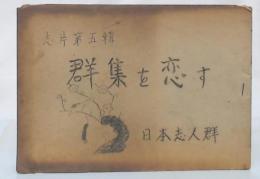 志片第五輯
群集を恋す
日本志人群